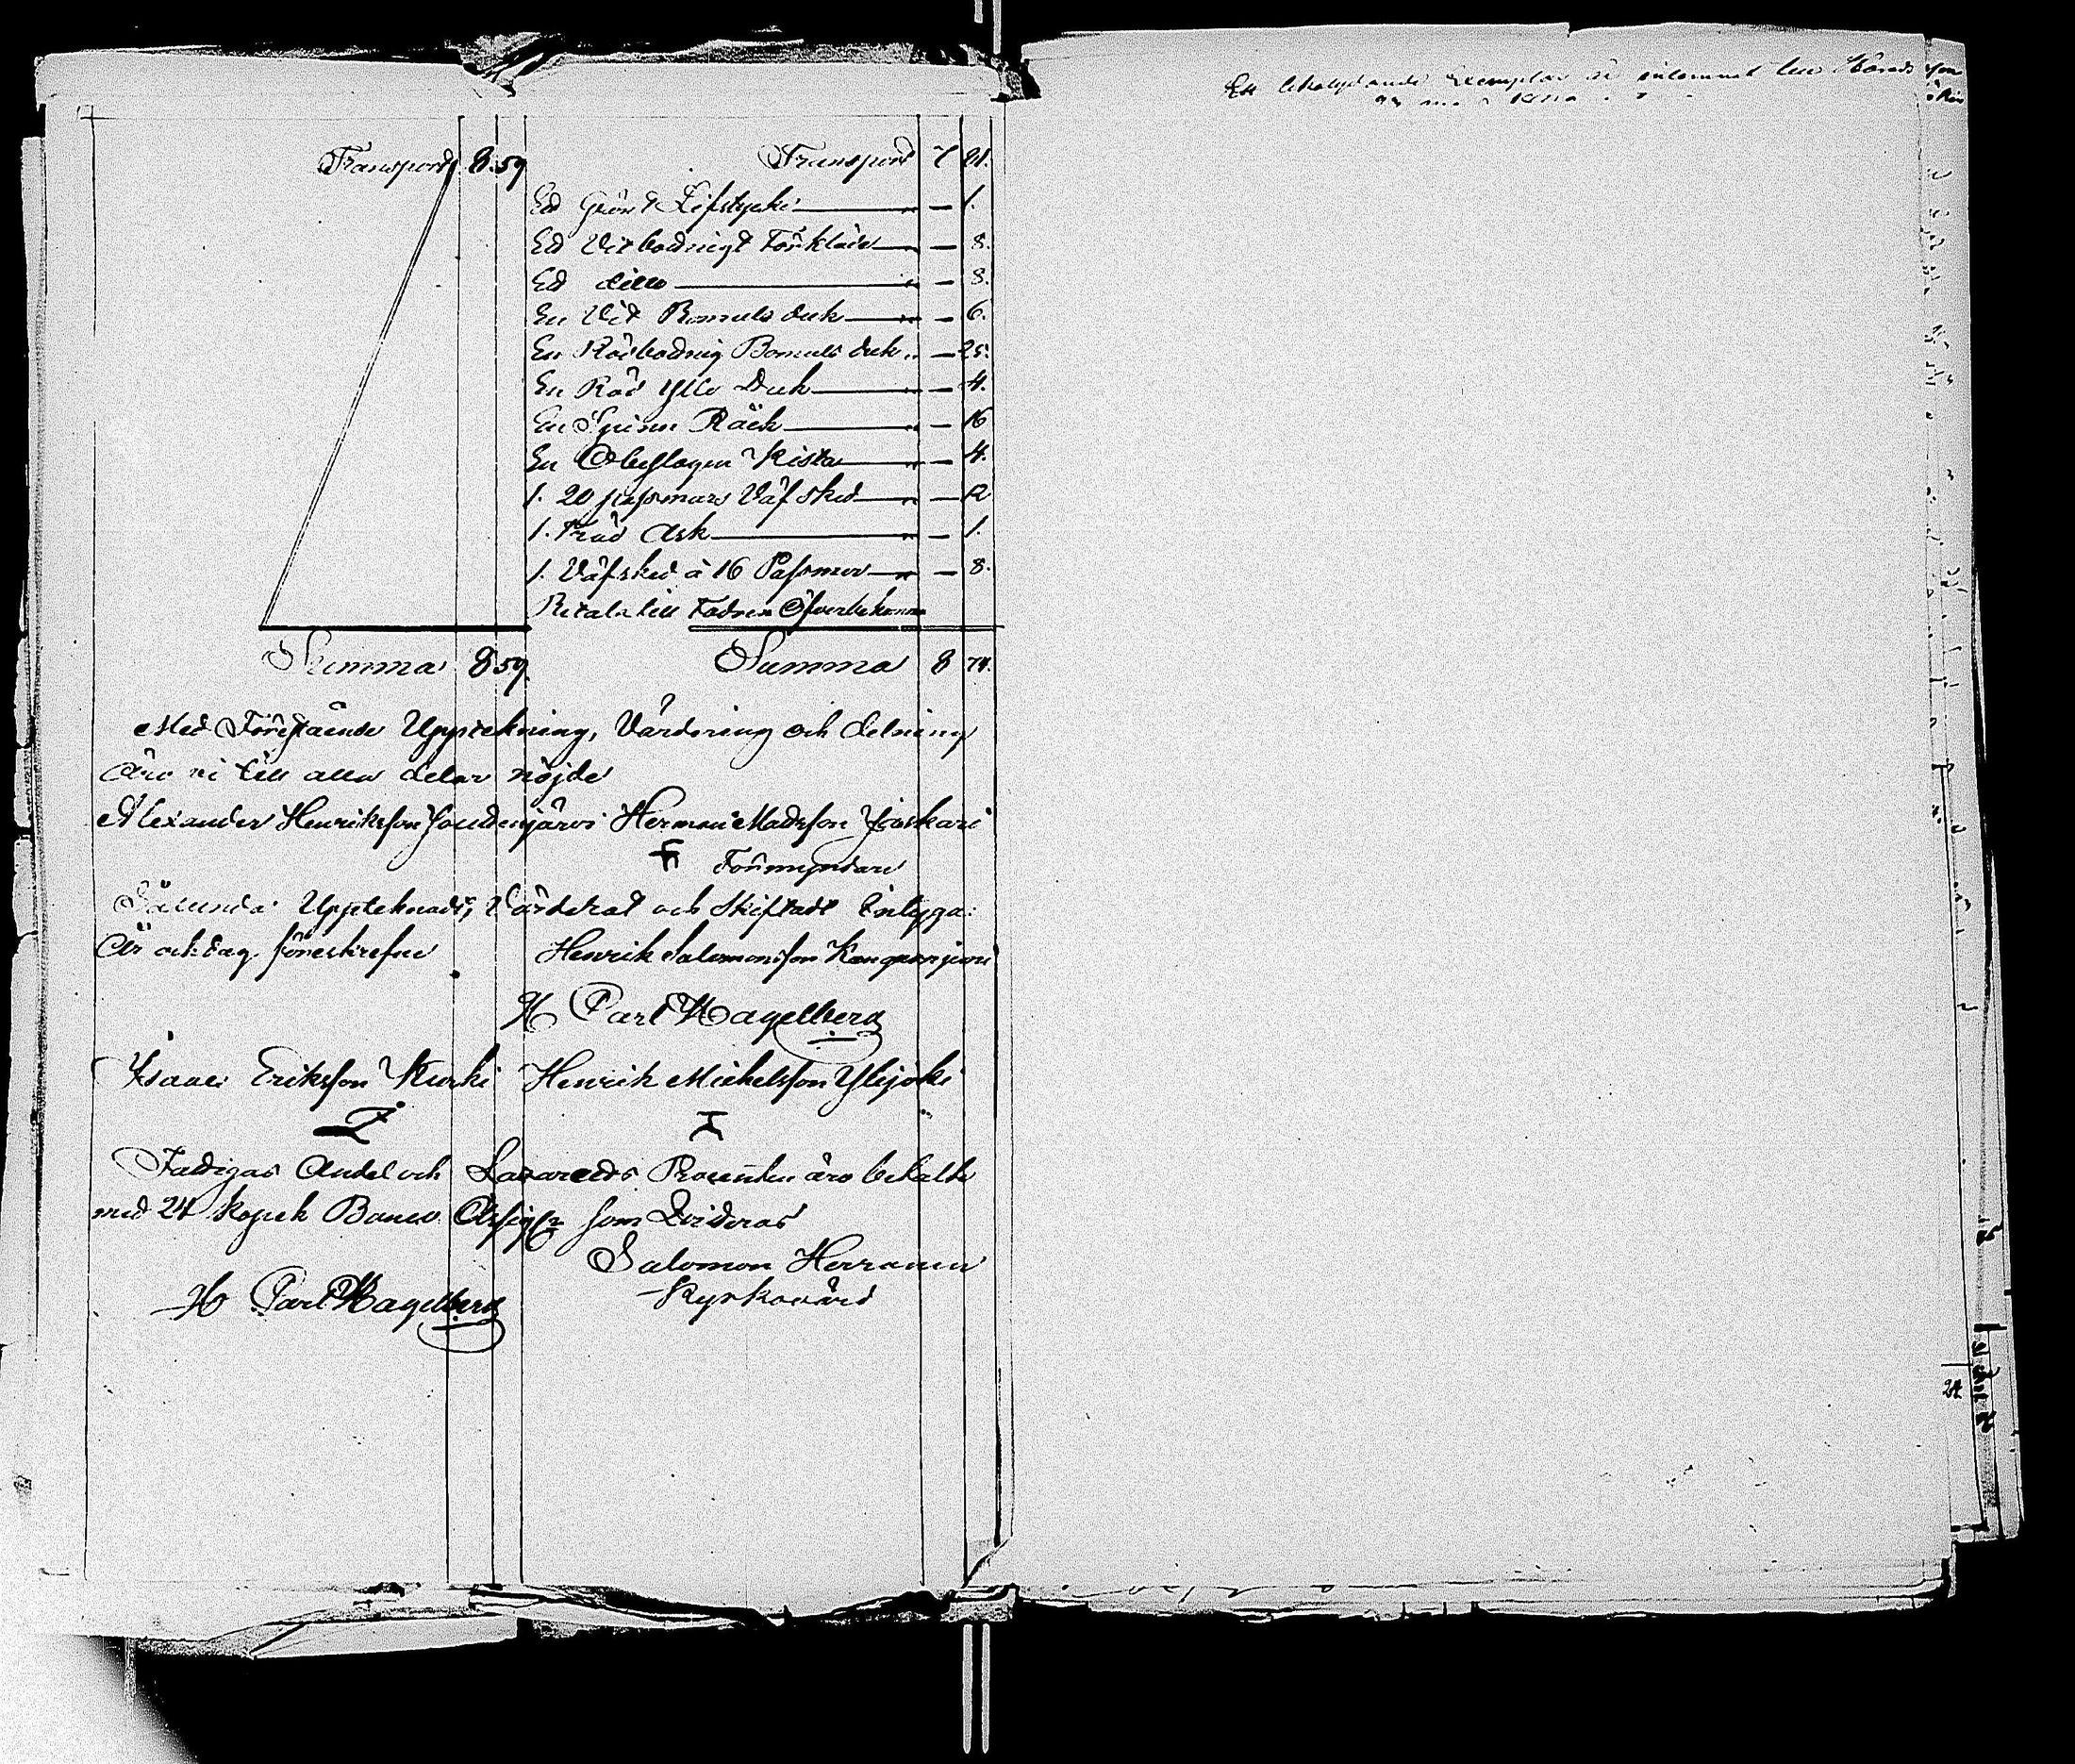 Transport 8.59
Transport 7 81.
Ett Grönt Lifstycke — 1.
Ett Vitbodnigt Förkläde — 8.
Ett ditto — 8.
En Vit Bomuls duk — 6.
En Rödbodnig Bomuls duk — 25.
En Röd Ylle Duk — 4.
En Spinn Råck — 16
En Obeslagen Kista — 4.
1. 20 Passmars Väf sked — 12
1. Träd Ask — 1.
1. Väfsked à 16 Passmar — 8.
Betala till Fadren
Summa 8 59.
Summa 8 74.
Med Föreståends Uppteckning, Värdering och delning
äro vi till alla delar nöjde
Alexander Henriksson Herman Matsson
Förmyndare
Sålunda Upptecknadt, Värderat och Skiftadt intyga:
År och dag föreskrefne Henrik Salomonsson
H Carl Hagelberg
Isaac Eriksson Kurki Henrik Michelsson Ylijoki
Fattigas Andel och Lazaretts Procenten äro betalte
med 24 kopek Banco Assigr som Qviteras
Salomon Herranen
H Carl Hagelberg Kyrkovärd
Ett likalydande Exemplar är inlemnat
24